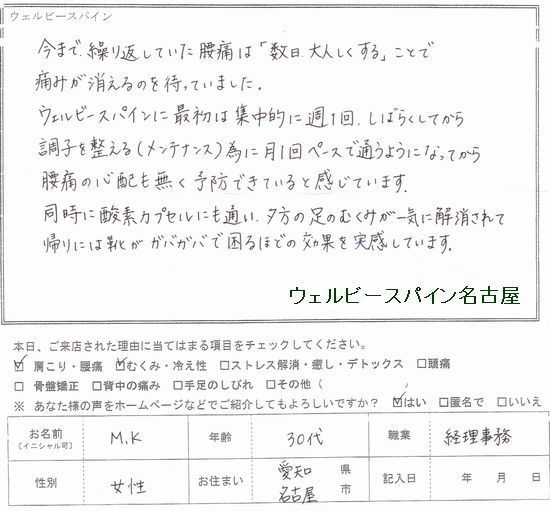 ウェルビースパイン
今まで、繰り返していた腰痛は「数日、大人しくする」ことで
痛みが消えるのを待っていました。
ウェルビースパインに最初は集中的に週1回、しばらくしてから
調子を整える(メンテナンス)為に月1回ペースで通うようになってから
腰痛の心配も無く予防できていると感じています。
同時に酸素カプセルにも通い、夕方の足のむくみが一気に解消されて
帰りには靴がガバガバで困るほどの効果を実感しています。
ウェルビースパイン名古屋
本日、ご来店された理由に当てはまる項目をチェックしてください。
☑ 肩こり・腰痛 ☑むくみ・冷え性 □ストレス解消・癒し・デトックス □頭痛
□ 骨盤矯正 □背中の痛み □手足のしびれ □その他(
※ あなた様の声をホームページなどでご紹介してもよろしいですか? ☑はい □匿名で □いいえ
お名前 [イニシャル可] M.K 年齢 30代 職業 経理事務
性別 女性 お住まい 愛知 県 名古屋 市 記入日 年 月 日